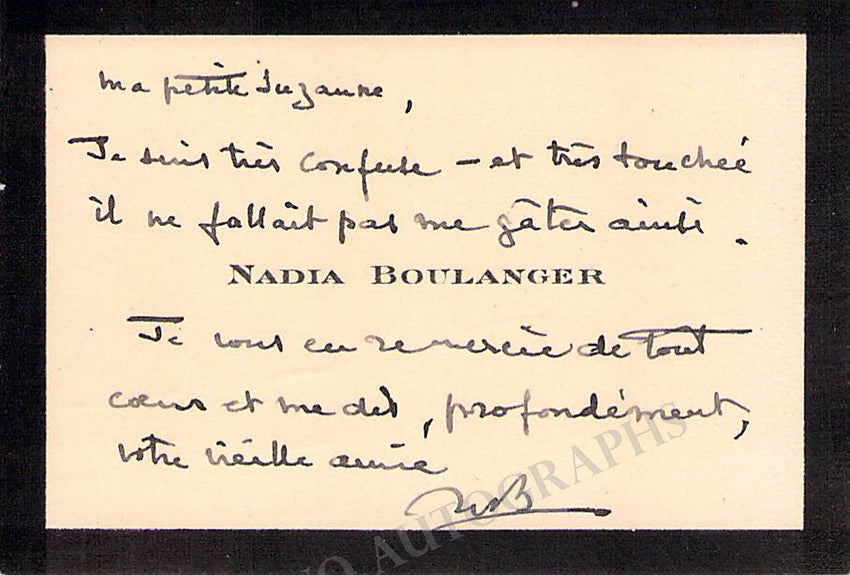 ma petite Suzanne,
Je suis très confuse – et très touchée
il ne fallait pas me gâter ainsi.
NADIA BOULANGER
Je vous en remercie de tout
cœur et me dis, profondément,
votre vieille amie
NB
AUTOGRAPHS